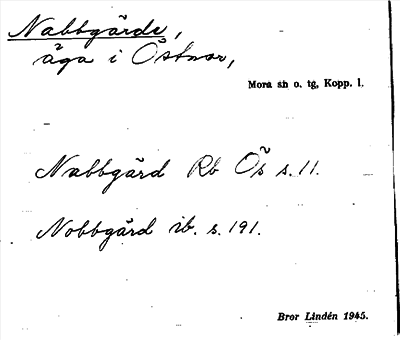 Nabbgårde,
äga i Östnor,
Mora sn o. tg, Kopp. l.
Nabbgård Rb Ös s. 11.
Nobbgård ib. s. 191.
Bror Lindén 1945.